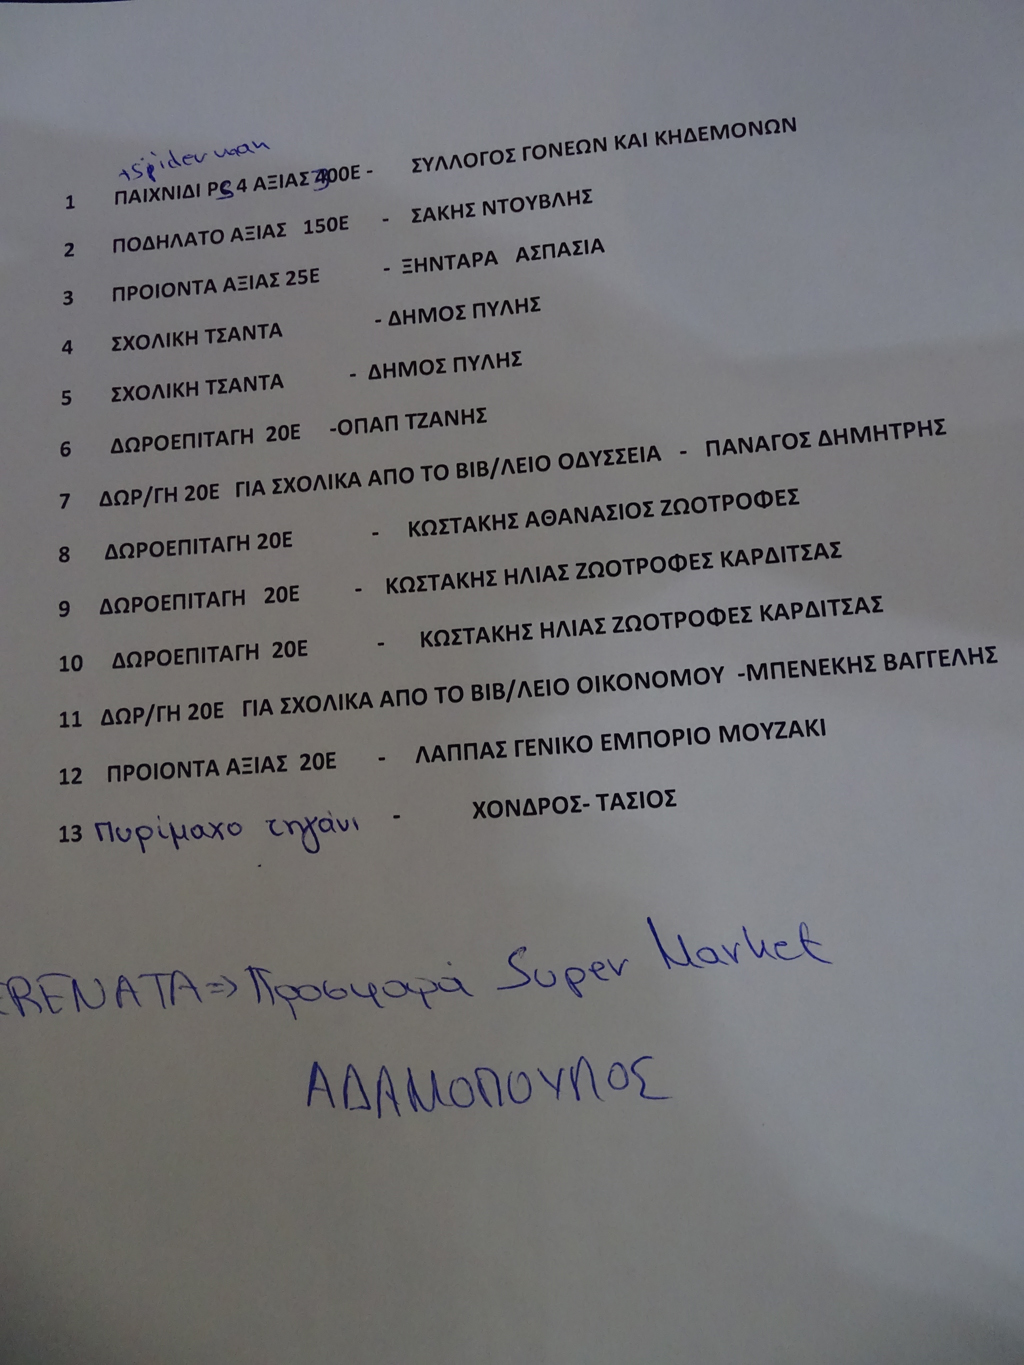 +Spiderman
1 ΠΑΙΧΝΙΔΙ PS 4 ΑΞΙΑΣ 300Ε - ΣΥΛΛΟΓΟΣ ΓΟΝΕΩΝ ΚΑΙ ΚΗΔΕΜΟΝΩΝ
2 ΠΟΔΗΛΑΤΟ ΑΞΙΑΣ 150Ε - ΣΑΚΗΣ ΝΤΟΥΒΛΗΣ
3 ΠΡΟΙΟΝΤΑ ΑΞΙΑΣ 25Ε - ΞΗΝΤΑΡΑ ΑΣΠΑΣΙΑ
4 ΣΧΟΛΙΚΗ ΤΣΑΝΤΑ - ΔΗΜΟΣ ΠΥΛΗΣ
5 ΣΧΟΛΙΚΗ ΤΣΑΝΤΑ - ΔΗΜΟΣ ΠΥΛΗΣ
6 ΔΩΡΟΕΠΙΤΑΓΗ 20Ε -ΟΠΑΠ ΤΖΑΝΗΣ
7 ΔΩΡ/ΓΗ 20Ε ΓΙΑ ΣΧΟΛΙΚΑ ΑΠΟ ΤΟ ΒΙΒ/ΛΕΙΟ ΟΔΥΣΣΕΙΑ - ΠΑΝΑΓΟΣ ΔΗΜΗΤΡΗΣ
8 ΔΩΡΟΕΠΙΤΑΓΗ 20Ε - ΚΩΣΤΑΚΗΣ ΑΘΑΝΑΣΙΟΣ ΖΩΟΤΡΟΦΕΣ
9 ΔΩΡΟΕΠΙΤΑΓΗ 20Ε - ΚΩΣΤΑΚΗΣ ΗΛΙΑΣ ΖΩΟΤΡΟΦΕΣ ΚΑΡΔΙΤΣΑΣ
10 ΔΩΡΟΕΠΙΤΑΓΗ 20Ε - ΚΩΣΤΑΚΗΣ ΗΛΙΑΣ ΖΩΟΤΡΟΦΕΣ ΚΑΡΔΙΤΣΑΣ
11 ΔΩΡ/ΓΗ 20Ε ΓΙΑ ΣΧΟΛΙΚΑ ΑΠΟ ΤΟ ΒΙΒ/ΛΕΙΟ ΟΙΚΟΝΟΜΟΥ -ΜΠΕΝΕΚΗΣ ΒΑΓΓΕΛΗΣ
12 ΠΡΟΙΟΝΤΑ ΑΞΙΑΣ 20Ε - ΛΑΠΠΑΣ ΓΕΝΙΚΟ ΕΜΠΟΡΙΟ ΜΟΥΖΑΚΙ
13 Πυρίμαχο τηγάνι - ΧΟΝΔΡΟΣ- ΤΑΣΙΟΣ
ERENATA => Προσφορά Super Market
ΑΔΑΜΟΠΟΥΛΟΣ